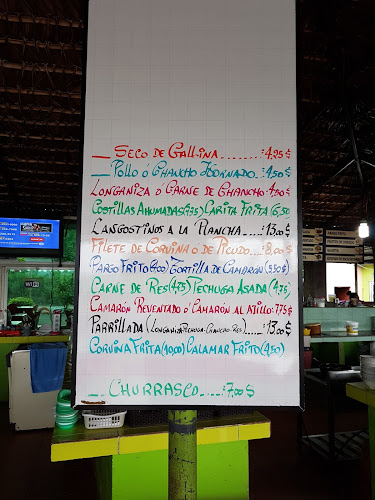 SECO DE GALLINA........: 4,25 $
POLLO Ó CHANCHO HORNADO: 4,50 $
LONGANIZA Ó CARNE DE CHANCHO: 4,50
COSTILLAS AHUMADAS(7,75) CARITA FRITA(6,50
LANGOSTINOS A LA PLANCHA.......: 13,00 $
FILETE DE CORVINA O DE PICUDO...: 8,00 $
PARGO FRITO( TORTILLA DE CAMARÓN(5,50$)
CARNE DE RES(4,75) PECHUGA ASADA(4,75)
CAMARÓN REVENTADO Ó CAMARÓN AL AJILLO: 7,75 $
PARRILLADA (LONGANIZA-PECHUGA-CHANCHO-RES)...: 13,00 $
CORVINA FRITA(10,00) CALAMAR FRITO(4,50)
CHURRASCO...: 7,00 $